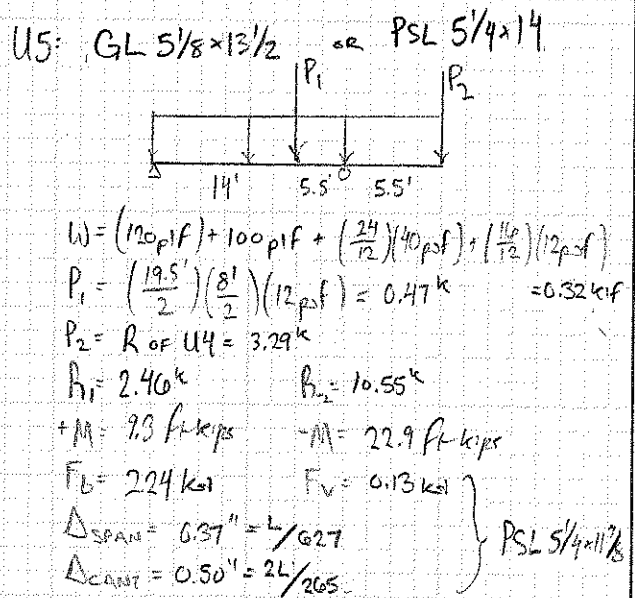 U5: GL 5 1/8 x 13 1/2 OR PSL 5 1/4 x 14
P₁
P₂
14' 5.5' 5.5'
W = (120plf) + 100plf + (24/12)(40psf) + (16/12)(12psf)
= 0.32 klf
P₁ = (19.5'/2)(8'/2)(12psf) = 0.47ᵏ
P₂ = R OF U4 = 3.29ᵏ
R₁ = 2.46ᵏ R₂ = 10.55ᵏ
+M = 9.3 ft-kips -M = 22.9 ft-kips
Fb = 2.24 ksi Fv = 0.13 ksi
Δ SPAN = 0.37" = L/627
PSL 5 1/4 x 11 7/8
Δ CANT = 0.50" = 2L/265